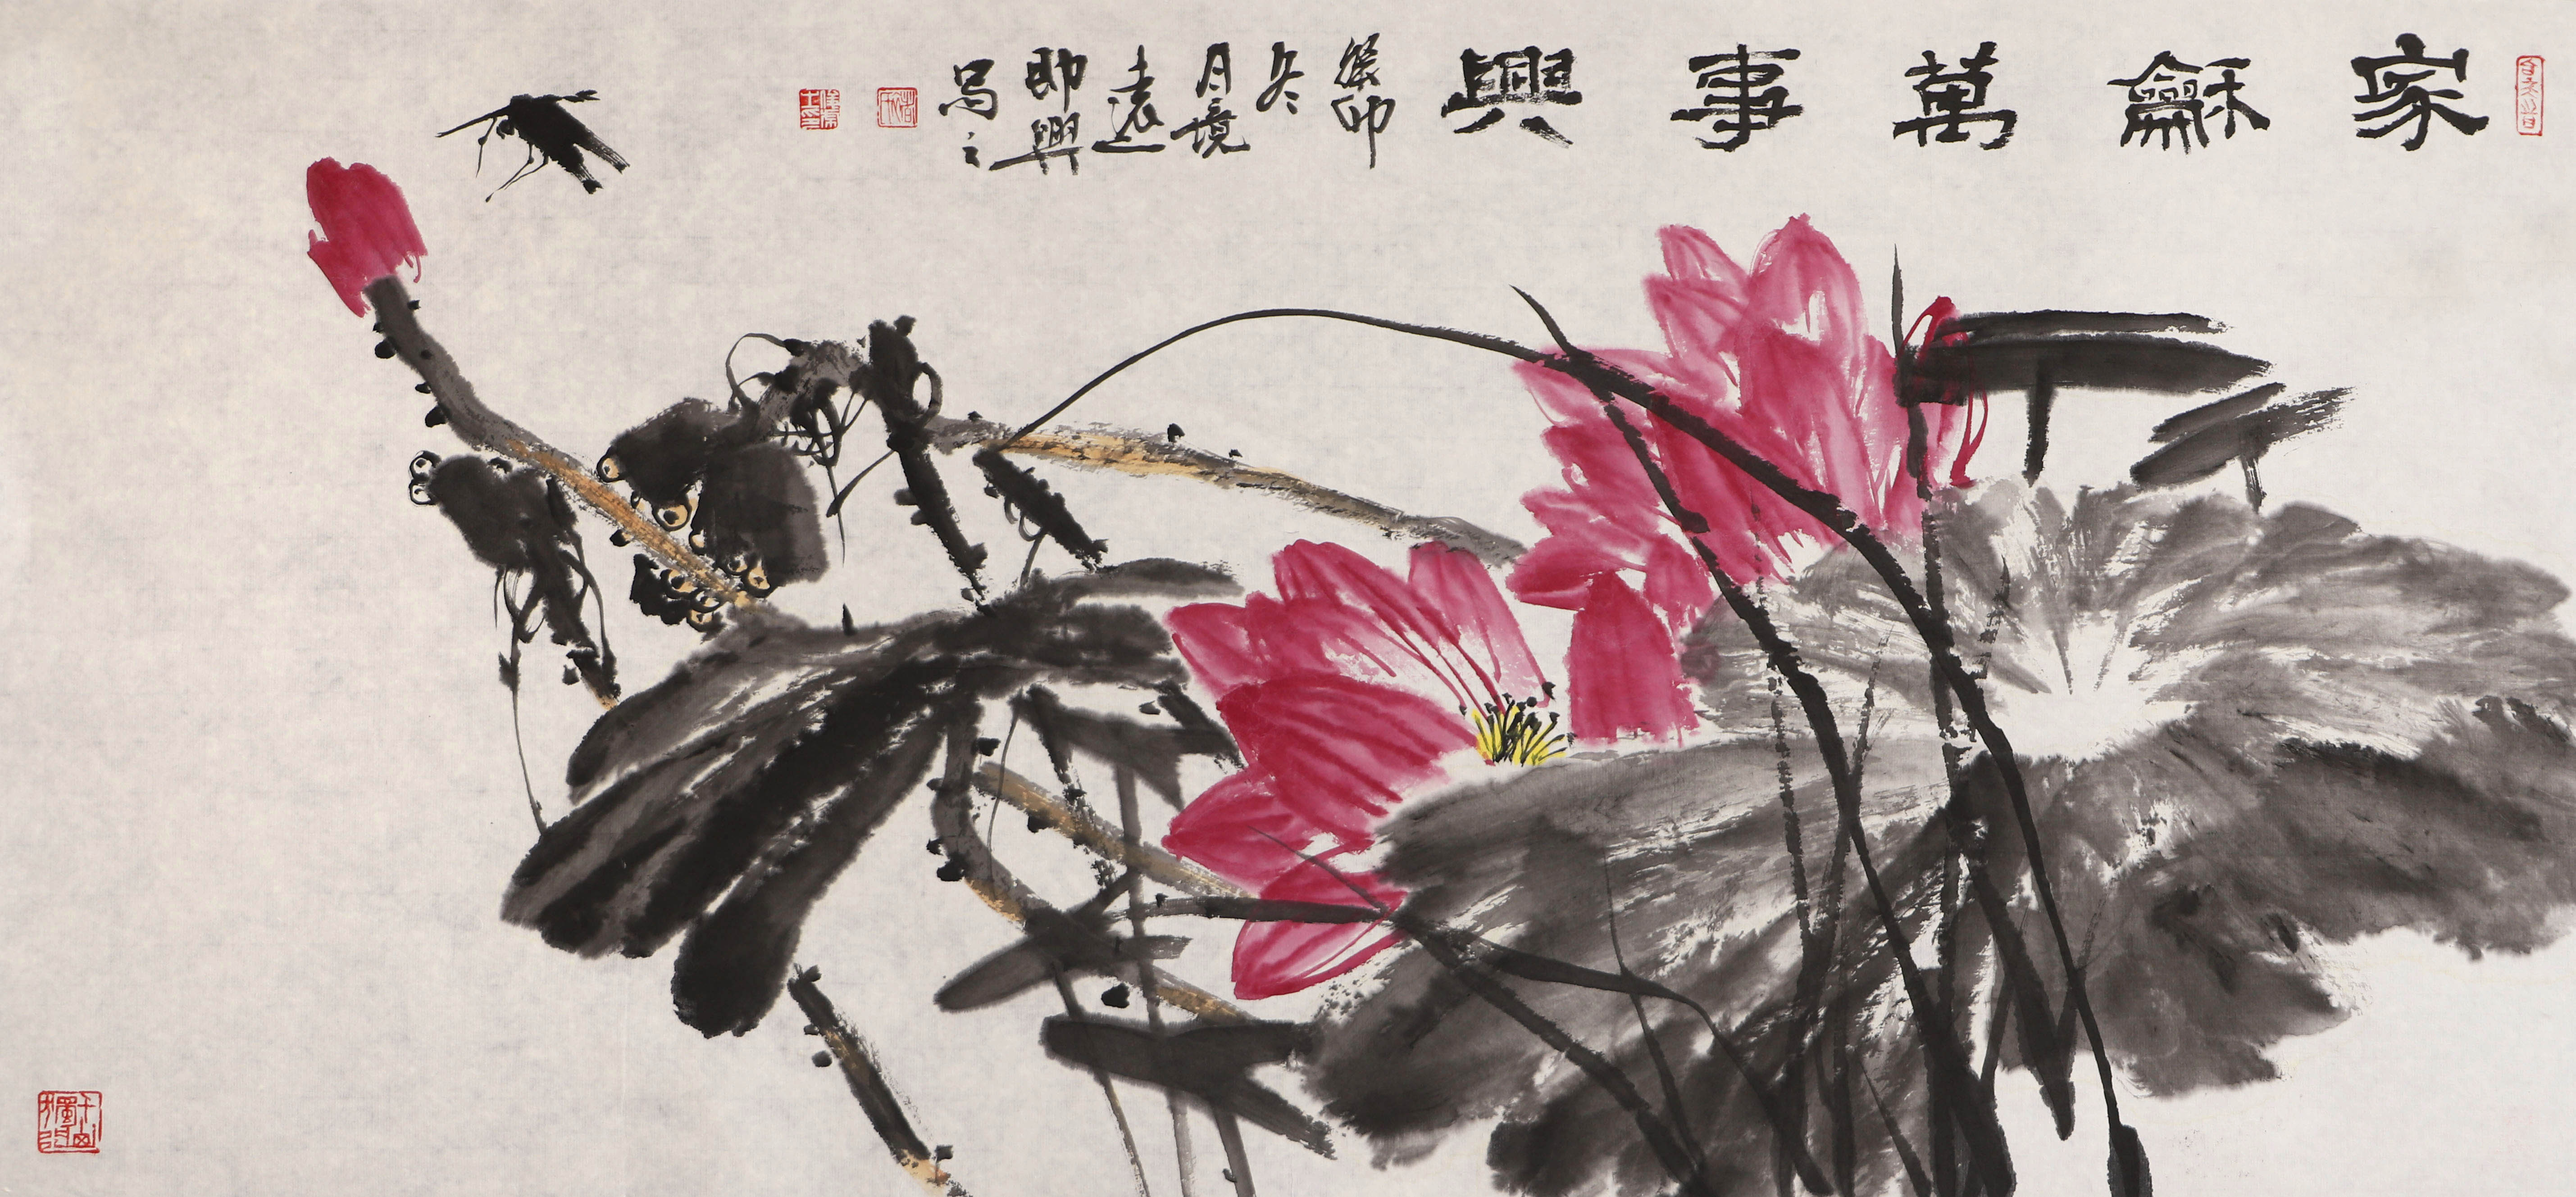 家龢萬事興
癸卯冬月境遠即興寫之